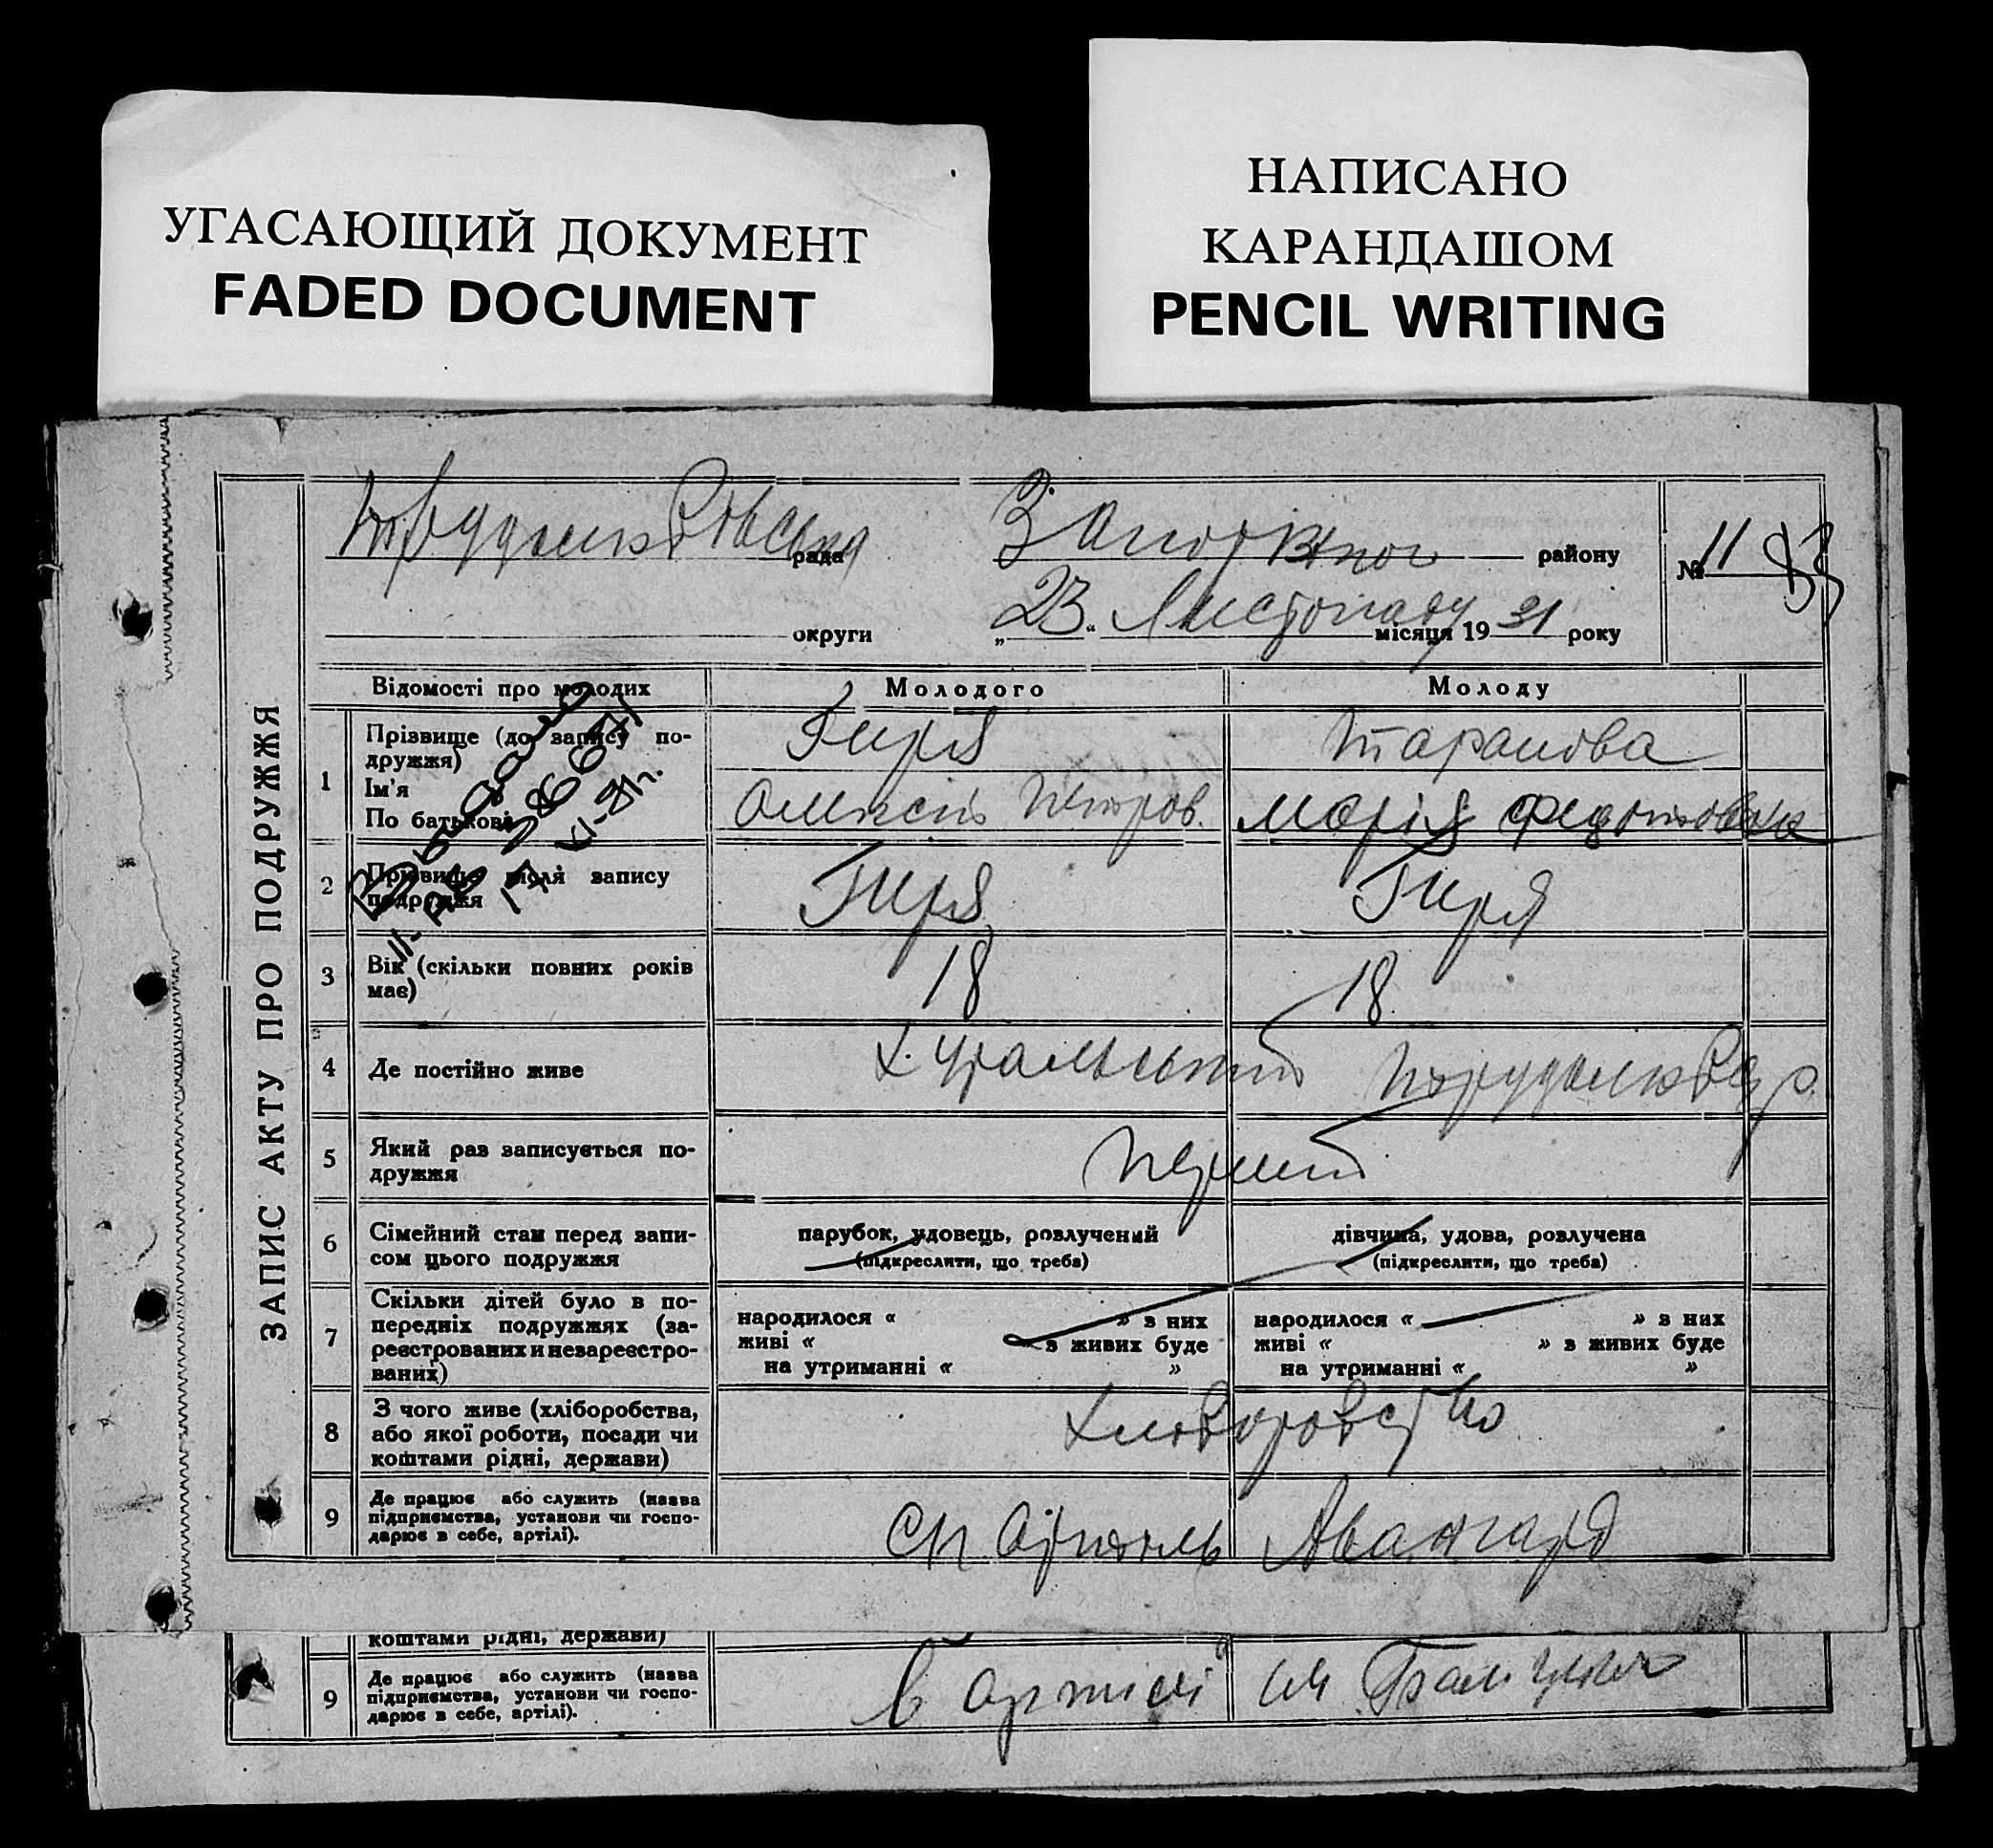 УГАСАЮЩИЙ ДОКУМЕНТ
FADED DOCUMENT
НАПИСАНО
КАРАНДАШОМ
PENCIL WRITING
ЗАПИС АКТУ ПРО ПОДРУЖЖЯ
рада району № 11
округи „23“ Листопаду місяця 1931 року
Відомості про молодих Молодого Молоду
1 Прізвище (до запису подружжя) Гиря Таранова
Ім'я
По батькові Олексій Петров. Марія Федотовна
2 Прізвище після запису подружжя Гиря Гиря
3 Вік (скільки повних років має) 18 18
4 Де постійно живе х. Уральський
5 Який раз записується подружжя Перший
6 Сімейний стан перед записом цього подружжя парубок, удовець, розлучений дівчина, удова, розлучена
(підкреслити, що треба) (підкреслити, що треба)
7 Скільки дітей було в попередніх подружжях (зареєстрованих и незареєстрованих) народилося « » з них народилося « » з них
живі « » з живих буде живі « » з живих буде
на утриманні « » на утриманні « »
8 З чого живе (хліборобства, або якої роботи, посади чи коштами рідні, держави)
9 Де працює або служить (назва підприємства, установи чи господарює в себе, артілі). Авангард
коштами рідні, держави)
9 Де працює або служить (назва підприємства, установи чи господарює в себе, артілі). в артилі ім